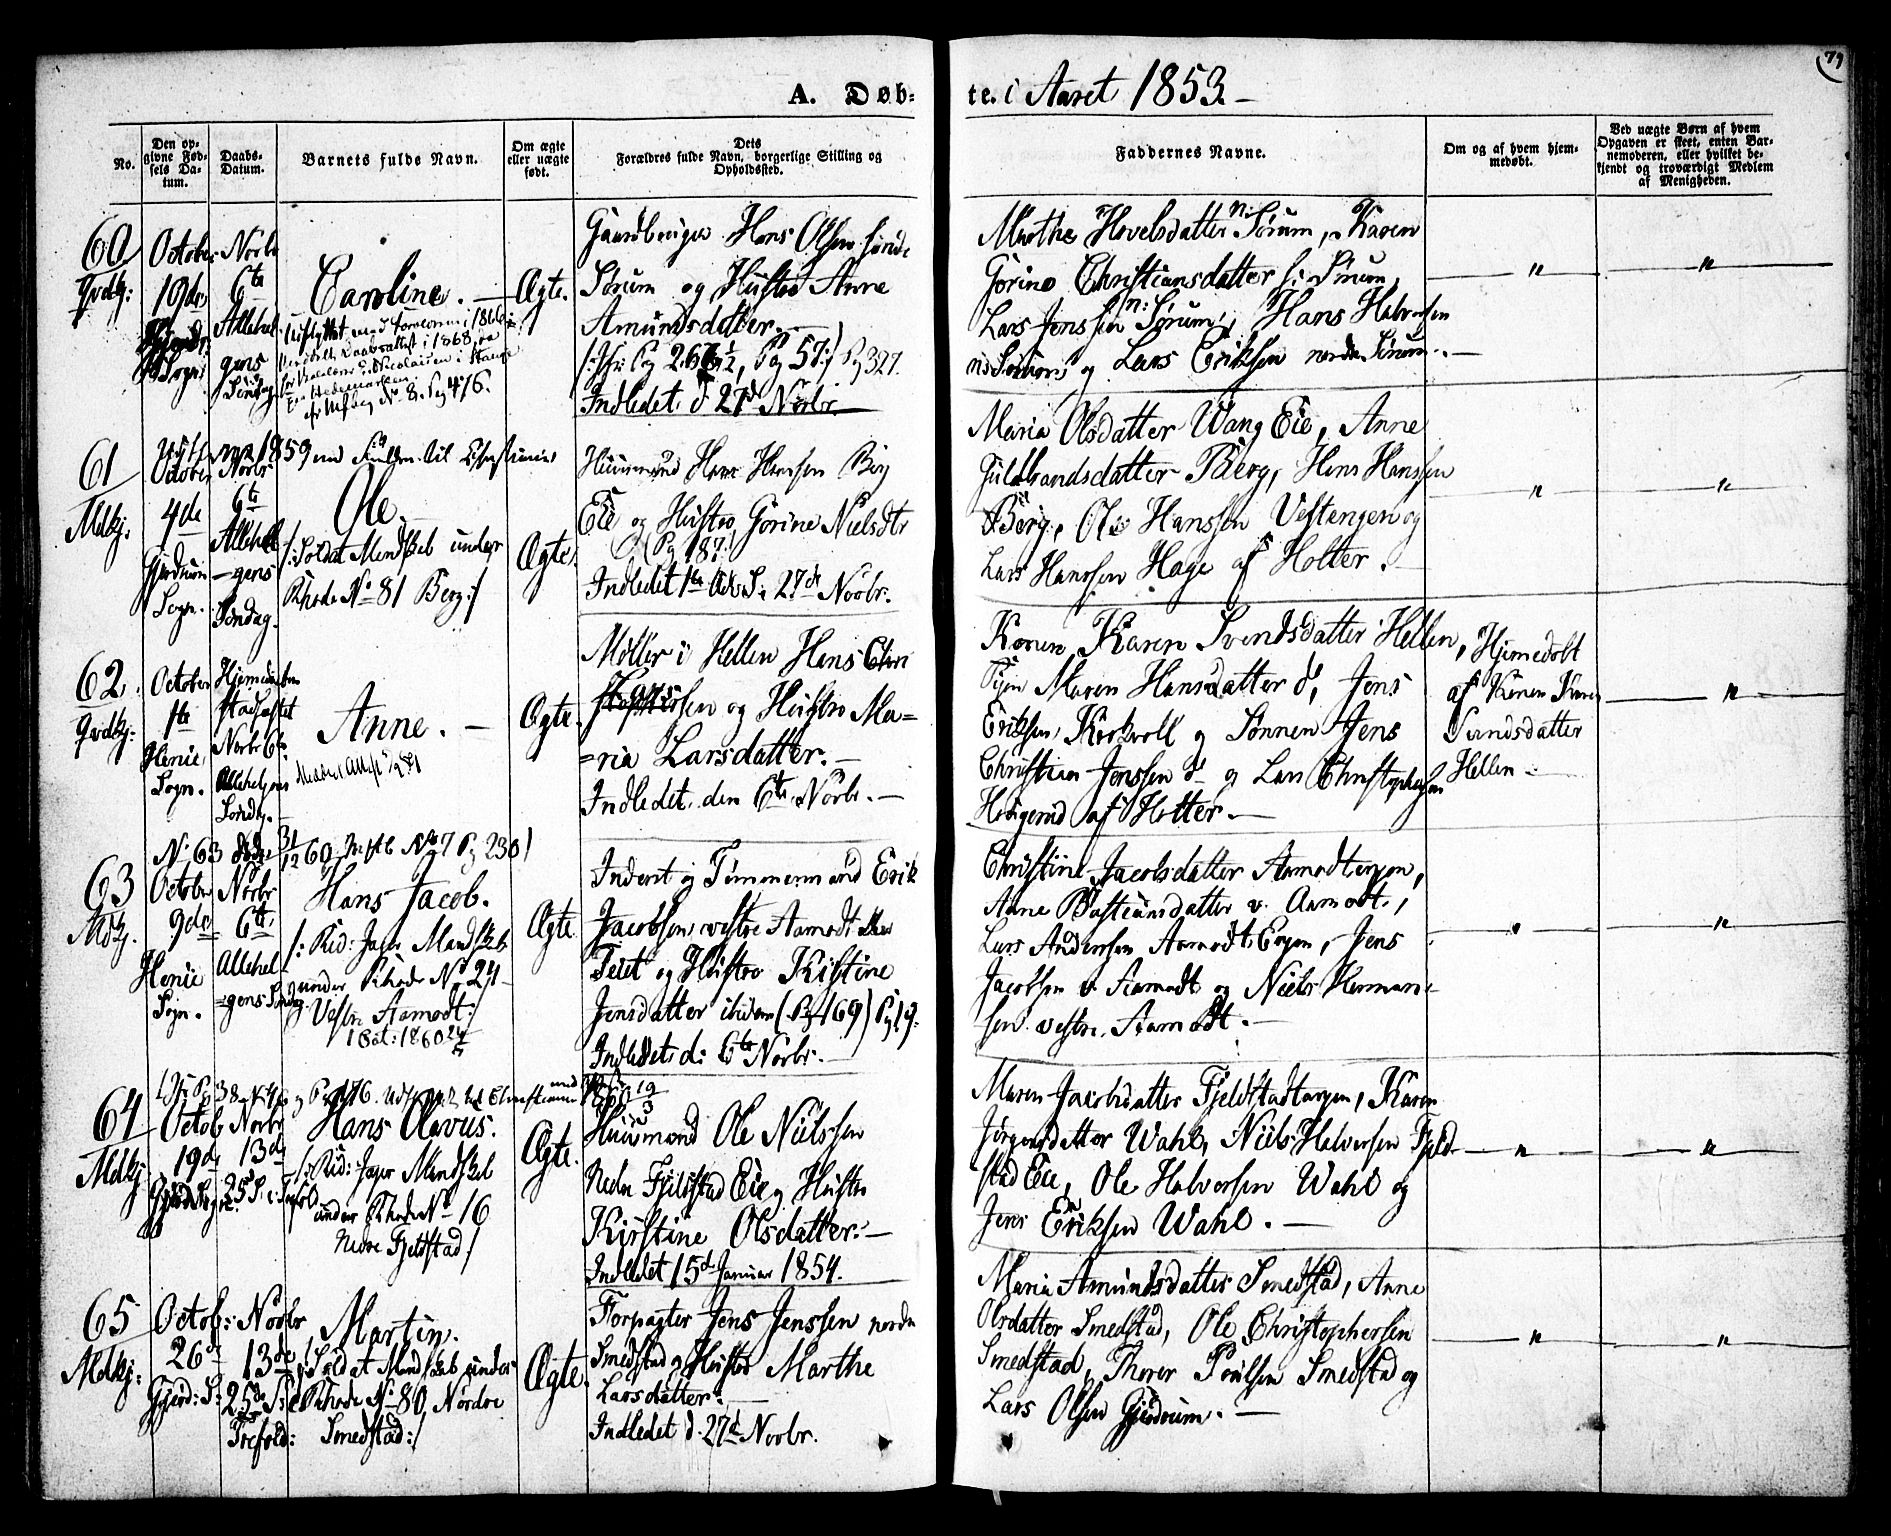 79
A. Døb-
te. i Aaret 1853.-
No.
Den op-
givne Fød-
sels Da-
tum.
Daabs-
Datum.
Barnets fulde Navn.
Om ægte
eller uægte
født.
Dets
Forældres fulde Navn, borgerlige Stilling og
Opholdssted.
Faddernes Navne.
Om og af hvem hjem-
medøbt.
Ved uægte Børn af hvem
Opgaven er skeet, enten Bar-
nemoderen, eller hvilket be-
kjendt og troværdigt Medlem
af Menigheden.
60
Qvdkj:
October
19de
Sogn
Novbr
6te
Allehel
gens
Søndag
Caroline. -
i 1868
No 8. Pag 476.
Ægte.
Gaardbruger Hans Olsen
Sørum og Hustro Anne
Amundsdatter. -
Pg 57:) Pg 327.
Indledet d 27de Novbr. -
Marthe Hovelsdatter n: Sørum, Karen
Gorine Christiansdatter s: Sørum,
Lars Jenssen n: Sørum, Hans Halvorsen
n: Sørum, og Lars Eriksen nordre Sørum. -
"
"
61
Mdkj.
October
4de
Gjerdrum
Sogn.
Novbr
6te
Allehel
-gens
Søndag.
1859 til Christiania
Ole
/: Soldat Mandskab under
Rhode No 81 Berg :/
Ægte.
Huusmand Hans Hansen Berg
Eie og Hustro Gorine Nielsdtr
(Pg 187:)
Indledet 1ste Adv. S: 27de Novbr.
Maria Olsdatter Wang Eie, Anne
Guldbrandsdatter Berg, Hans Hanssen
Berg, Ole Hanssen Vestengen og
Lars Hanssen Hage af Holter. -
"
"
62.
Qvdkj:
October
1ste
Henie
Sogn.
Hjemedøbt
stadfæstet
Novbr 6te
Allehelgens
Søndg. -
Anne. -
Ægte.
Møller i Hellen Hans Chri
stophersen og Hustro Ma=
=ria Larsdatter. -
Indledet. den 6te Novbr. -
Konen Karen Svendsdatter Hellen,
Pigen Maren Hansdatter d, Jens
Eriksen, Kirkvoll og Sønnen Jens
Christian Jenssen d og Lars Christophersen
af Holter. -
Hjemedøbt
af Konen Karen
Svendsdatter
Hellen -
"
No 63 døde 31/12 60, No 7 Pg 230)
63
Mdkj.
October
9de
Henie
Sogn.
Novbr
6te
Allehel
=gens Søndag
Hans Jacob.
/: Rid: Jæger Mandskab
under Rhode No 24
Vestre Aamodt :/
1860
Ægte
Inderst og Tømmermand Erik
Jacobsen, vestre Aamodt
Feiet og Hustro Kistine
Jensdatter ibidem (Pg 169) Pg 19.
Indledet d: 6te Novbr. -
Christine Jacobsdatter Aamodtengen,
Anne Bastiansdatter v. Aamodt,
Lars Anderssen Aamodt Engen, Jens
Jacobsen v. Aamodt og Niels Herman-
sen vestre. Aamodt. -
"
"
64
Mdkj
Octob
19de
Novbr
13de
25 S. e: Trefold
Hans Olavus.
/: Rid: Jæger Mandskab
under Rhode No 16
Nedre Fjeldstad :/
Ægte.
Huusmand Ole Nielssen
Nedre Fjeldstad Eie og Hustro
Kirstine Olsdatter. -
Indledet 15de Januar 1854.
Maren Jacobsdatter Fjeldstadengen, Karen
Jørgensdatter Wahl, Niels Halversen Fjeld-
stad Eie, Ole Halversen Wahl og
Jens Eriksen Wahl. -
"
"
65
Mdkj:
Octob:
26de
Gjerd: S:
Novbr
13de
25de S: e
Trefold:
Martin.
/: Soldat Mandskab under
Rhode No 80 Nordre
Smedstad :/
Ægte.
Forpagter Jens Jenssen nordre
Smedstad og Hustro Marthe
Larsdatter. -
Indledet d. 27de Novbr.
Maria Amundsdatter Smedstad, Anne
Olsdatter Smedstad, Ole Christophersen
Smedstad, Thorer Poulsen Smedstad og
Lars Olsen Gjerdrum. -
"
"